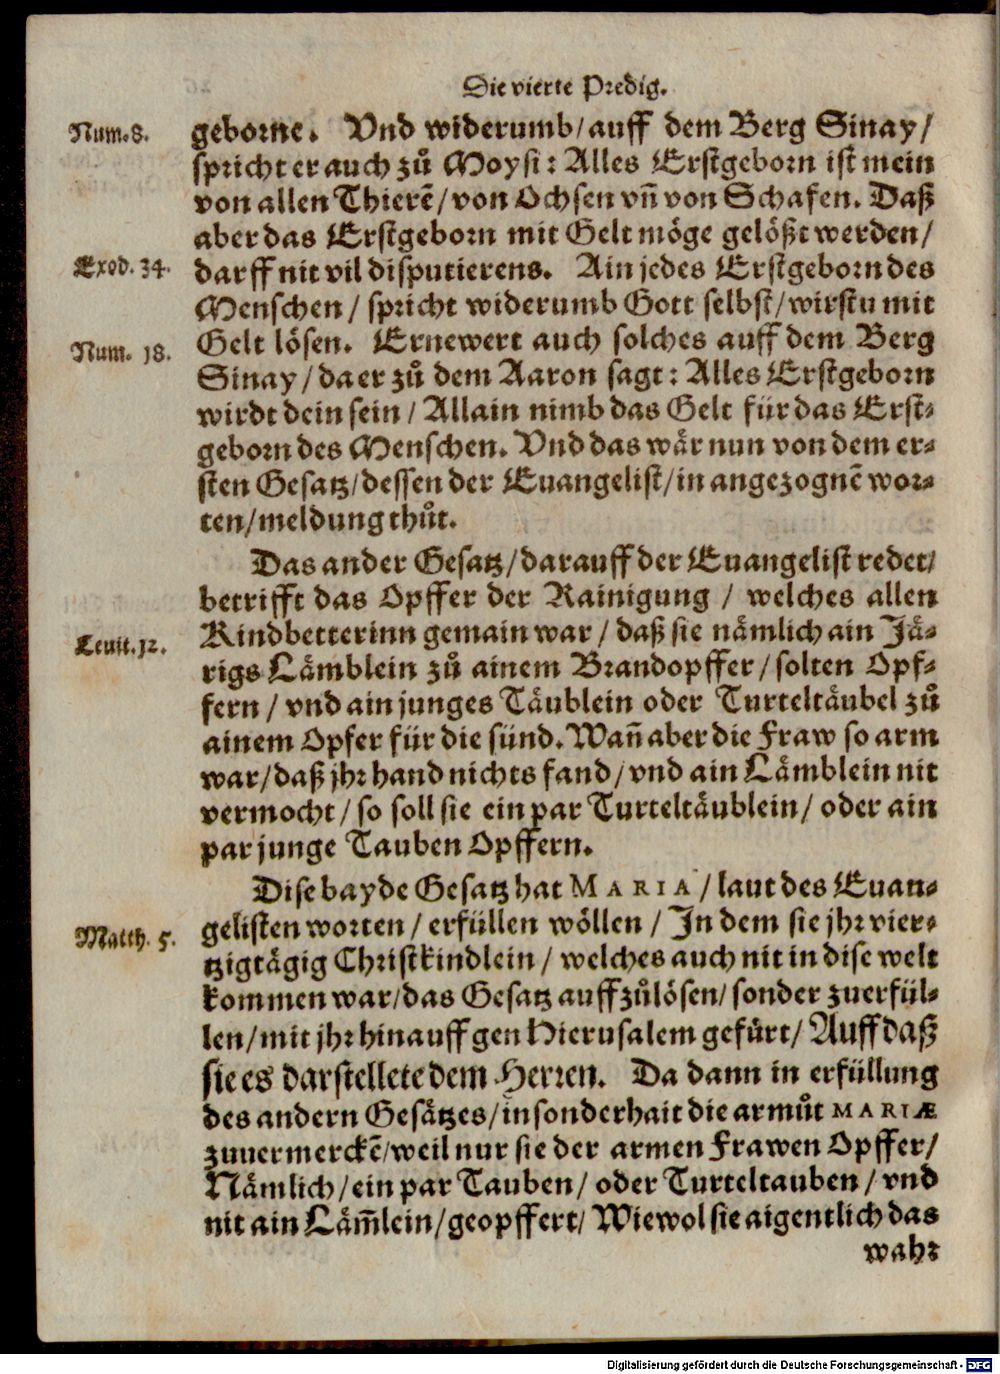 Die vierte Predig.
Num. 8.
geborne. Vnd widerumb/ auff dem Berg Sinay/
spricht er auch zů Moysi: Alles Erstgeborn ist mein
von allen Thierẽ/ von Ochsen vñ von Schafen. Daß
aber das Erstgeborn mit Gelt möge gelößt werden/
Exod. 34.
darff nit vil disputierens. Ain jedes Erstgeborn des
Menschen/ spricht widerumb Gott selbst/ wirstu mit
Num. 18.
Gelt lösen. Ernewert auch solches auff dem Berg
Sinay/ da er zů dem Aaron sagt: Alles Erstgeborn
wirdt dein sein/ Allain nimb das Gelt für das Erst-
geborn des Menschen. Vnd das wär nun von dem er-
sten Gesatz/ dessen der Euangelist/ in angezognẽ wor-
ten/ meldung thůt.
Das ander Gesatz/ darauff der Euangelist redet/
betrifft das Opffer der Rainigung/ welches allen
Leuit. 12.
Kindbetterinn gemain war/ daß sie nämlich ain Jä-
rigs Lämblein zů ainem Brandopffer/ solten Opf-
fern/ vnd ain junges Täublein oder Turteltäubel zů
ainem Opfer für die sünd. Wañ aber die Fraw so arm
war/ daß jhr hand nichts fand/ vnd ain Lämblein nit
vermocht/ so soll sie ein par Turteltäublein/ oder ain
par junge Tauben Opffern.
Dise bayde Gesatz hat MARIA/ laut des Euan-
Matth. 5.
gelisten worten/ erfüllen wöllen/ In dem sie jhr vier-
tzigtägig Christkindlein/ welches auch nit in dise welt
kommen war/ das Gesatz auffzůlösen/ sonder zuerfül-
len/ mit jhr hinauff gen Hierusalem gefürt/ Auff daß
sie es darstellete dem Herren. Da dann in erfüllung
des andern Gesätzes/ insonderhait die armůt MARIÆ
zuuermerckẽ/ weil nur sie der armen Frawen Opffer/
Nämlich/ ein par Tauben/ oder Turteltauben/ vnd
nit ain Läm̃lein/ geopffert/ Wiewol sie aigentlich das
wahr
Digitalisierung gefördert durch die Deutsche Forschungsgemeinschaft - DFG